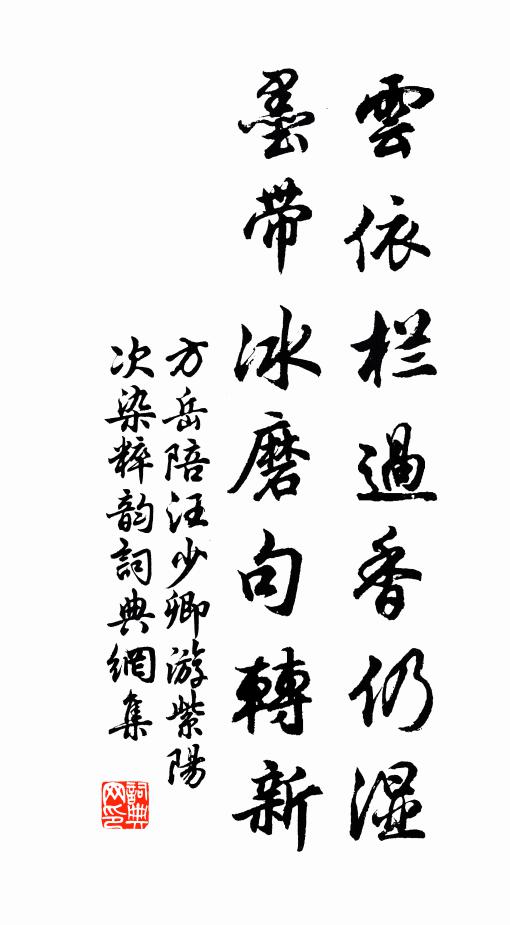 雲依栏過香仍湿
墨帶冰磨句轉新
方岳陪汪少卿游紫陽
次染粹韵詞典網集
詞典网印